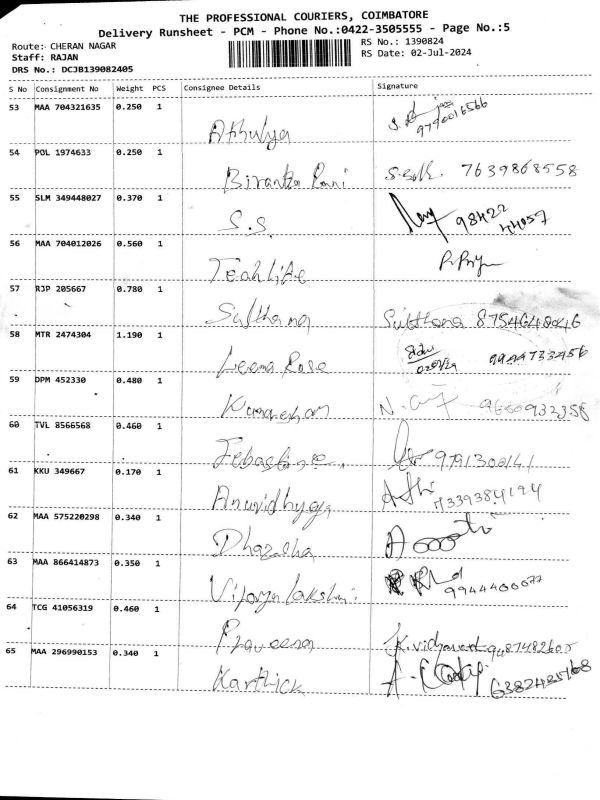 THE PROFESSIONAL COURIERS, COIMBATORE
Delivery Runsheet - PCM - Phone No.:0422-3505555 - Page No.:5
Route: CHERAN NAGAR RS No.: 1390824
Staff: RAJAN RS Date: 02-Jul-2024
DRS No.: DCJB139082405
S No Consignment No Weight PCS Consignee Details Signature
53 MAA 704321635 0.250 1
Athulya 9790016566
54 POL 1974633 0.250 1
Rani 7639868558
55 SLM 349448027 0.370 1
S.S. 98422 44057
56 MAA 704012026 0.560 1
Teahlife
57 RJP 205667 0.780 1
Sulthana Sulthana
58 MTR 2474304 1.190 1
Leema Rose 9994733456
59 DPM 452330 0.480 1
Kumaresham 9600932358
60 TVL 8566568 0.460 1
9791300141
61 KKU 349667 0.170 1
Anuvidhyaja 7339384194
62 MAA 575220298 0.340 1
63 MAA 866414873 0.350 1
Vijaya lakshmi. 9944400077
64 TCG 41056319 0.460 1
Praveena
65 MAA 296990153 0.340 1
Karthick